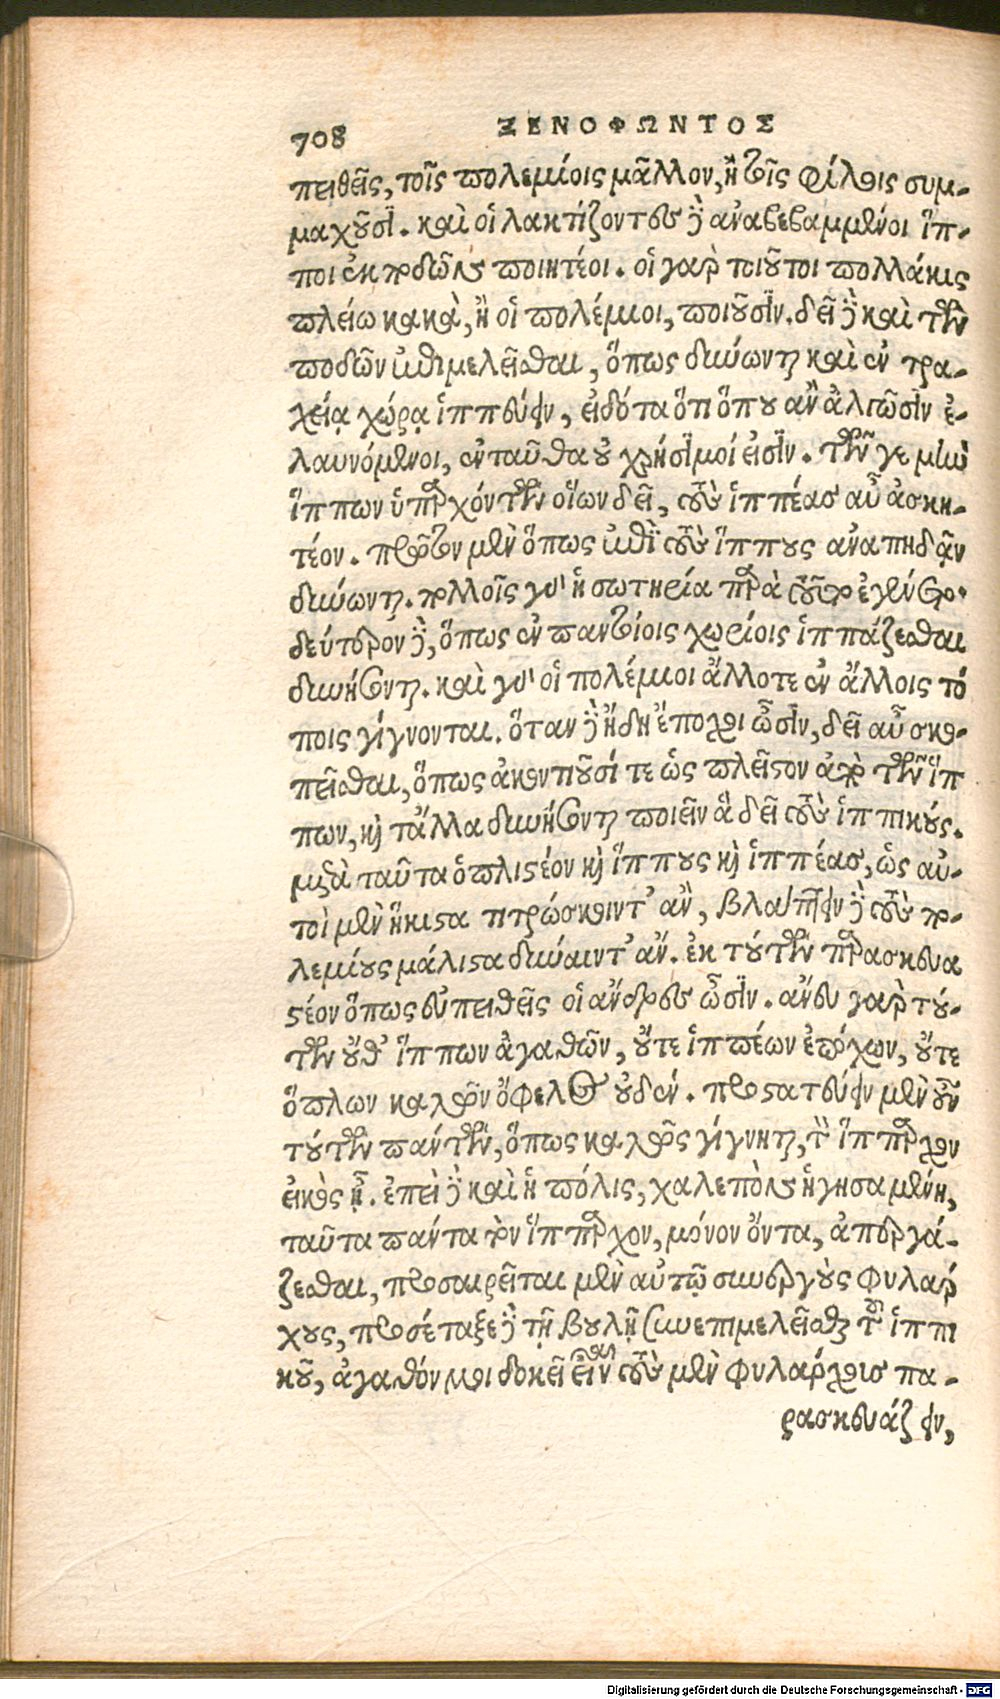 708 ΞΕΝΟΦΩΝΤΟΣ
πειθεῖς, τοῖς πολεμίοις μᾶλλον, ἢ τοῖς φίλοις συμ-
μαχοῦσι. καὶ οἱ λακτίζοντες δὲ ἀναβεβαμμένοι ἵπ-
ποι ἐκποδῶν ποιητέοι. οἱ γὰρ τοιοῦτοι πολλάκις
πλείω κακὰ, ἢ οἱ πολέμιοι, ποιοῦσιν. δεῖ δὲ καὶ τῶν
ποδῶν ἐπιμελεῖσθαι, ὅπως δύωνται καὶ ἐν τρα-
χείᾳ χώρᾳ ἱππεύειν, εἰδότα ὅτι ὅπου ἂν ἀλγῶσιν ἐ-
λαυνόμενοι, ἐνταῦθα οὐ χρήσιμοί εἰσιν. τῶν γε μὴν
ἵππων ὑπαρχόντων οἵων δεῖ, τοὺς ἱππέας αὖ ἀσκη-
τέον. πρῶτον μὲν ὅπως ἐπὶ τοὺς ἵππους ἀναπηδᾷν
δύωνται. πολλοῖς γὰρ ἡ σωτηρία παρὰ τοῦτο ἐγένετο.
δεύτερον δὲ, ὅπως ἐν παντοίοις χωρίοις ἱππάζεσθαι
δυνήσονται. καὶ γὰρ οἱ πολέμιοι ἄλλοτε ἐν ἄλλοις τό
ποις γίγνονται. ὅταν δὲ ἤδη ἔποχοι ὦσιν, δεῖ αὖ σκο-
πεῖσθαι, ὅπως ἀκοντιοῦσί τε ὡς πλεῖστον ἀπὸ τῶν ἵπ
πων, καὶ τἄλλα δυνήσονται ποιεῖν ἃ δεῖ τοὺς ἱππικούς.
μετὰ ταῦτα ὁπλιστέον καὶ ἵππους καὶ ἱππέας, ὡς αὐ-
τοὶ μὲν ἥκιστα τιτρώσκοιντ’ ἂν, βλάπτειν δὲ τοὺς πο-
λεμίους μάλιστα δύναιντ’ ἄν. ἐκ τούτων παρασκευα
στέον ὅπως εὐπειθεῖς οἱ ἄνδρες ὦσιν. ἄνευ γὰρ τού-
των οὔθ’ ἵππων ἀγαθῶν, οὔτε ἱππέων ἐπόχων, οὔτε
ὅπλων καλῶν ὄφελος οὐδέν. προστατεύειν μὲν οὖν
τούτων πάντων, ὅπως καλῶς γίγνηται, τὸν ἵππαρχον
εἰκός ἐστι. ἐπεὶ δὲ καὶ ἡ πόλις, χαλεπὸν ἡγησαμένη,
ταῦτα πάντα τὸν ἵππαρχον, μόνον ὄντα, ἀπεργά-
ζεσθαι, προσαιρεῖται μὲν αὐτῷ συνεργοὺς φυλάρ
χους, προσέταξε δὲ τῇ βουλῇ συνεπιμελεῖσθαι τοῦ ἱππι
κοῦ, ἀγαθόν μοι δοκεῖ εἶναι τοὺς μὲν φυλάρχοις πα-
ρασκευάζειν,
Digitalisierung gefördert durch die Deutsche Forschungsgemeinschaft - DFG